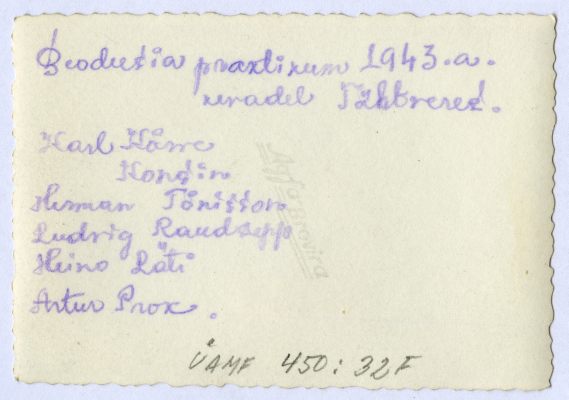 Geodeesia praktikum 1943.a.
kevadel Tähtveres.
Karl Kõrre
Konsin
Herman Tõnisson
Ludvig Raudsepp
Heino Läti
Artur Prox.
ÜAMF 450:32F